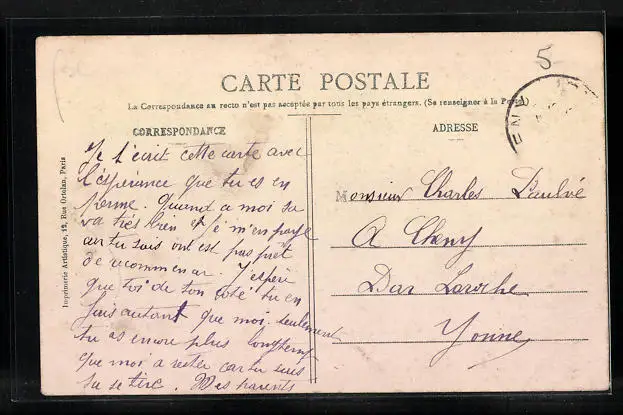 5
CARTE POSTALE
La Correspondance au recto n'est pas acceptée par tous les pays étrangers. (Se renseigner à la Poste)
CORRESPONDANCE
ADRESSE
Je t'écrit cette carte avec
l'espérance que tu es en
forme. Quand a moi sa
va très bien et je m'en paye
car tu sais on est pas prêt
de recommencer. J'espère
que toi de ton coté tu en
fais autant que moi seulement
tu as encore plus longtemps
que moi a rester car tu sais
sa se tire. Mes parents
Monsieur Charles Paulvé
A Cheny
Par Laroche
Yonne
Imprimerie Artistique, 12, Rue Ortolan, Paris